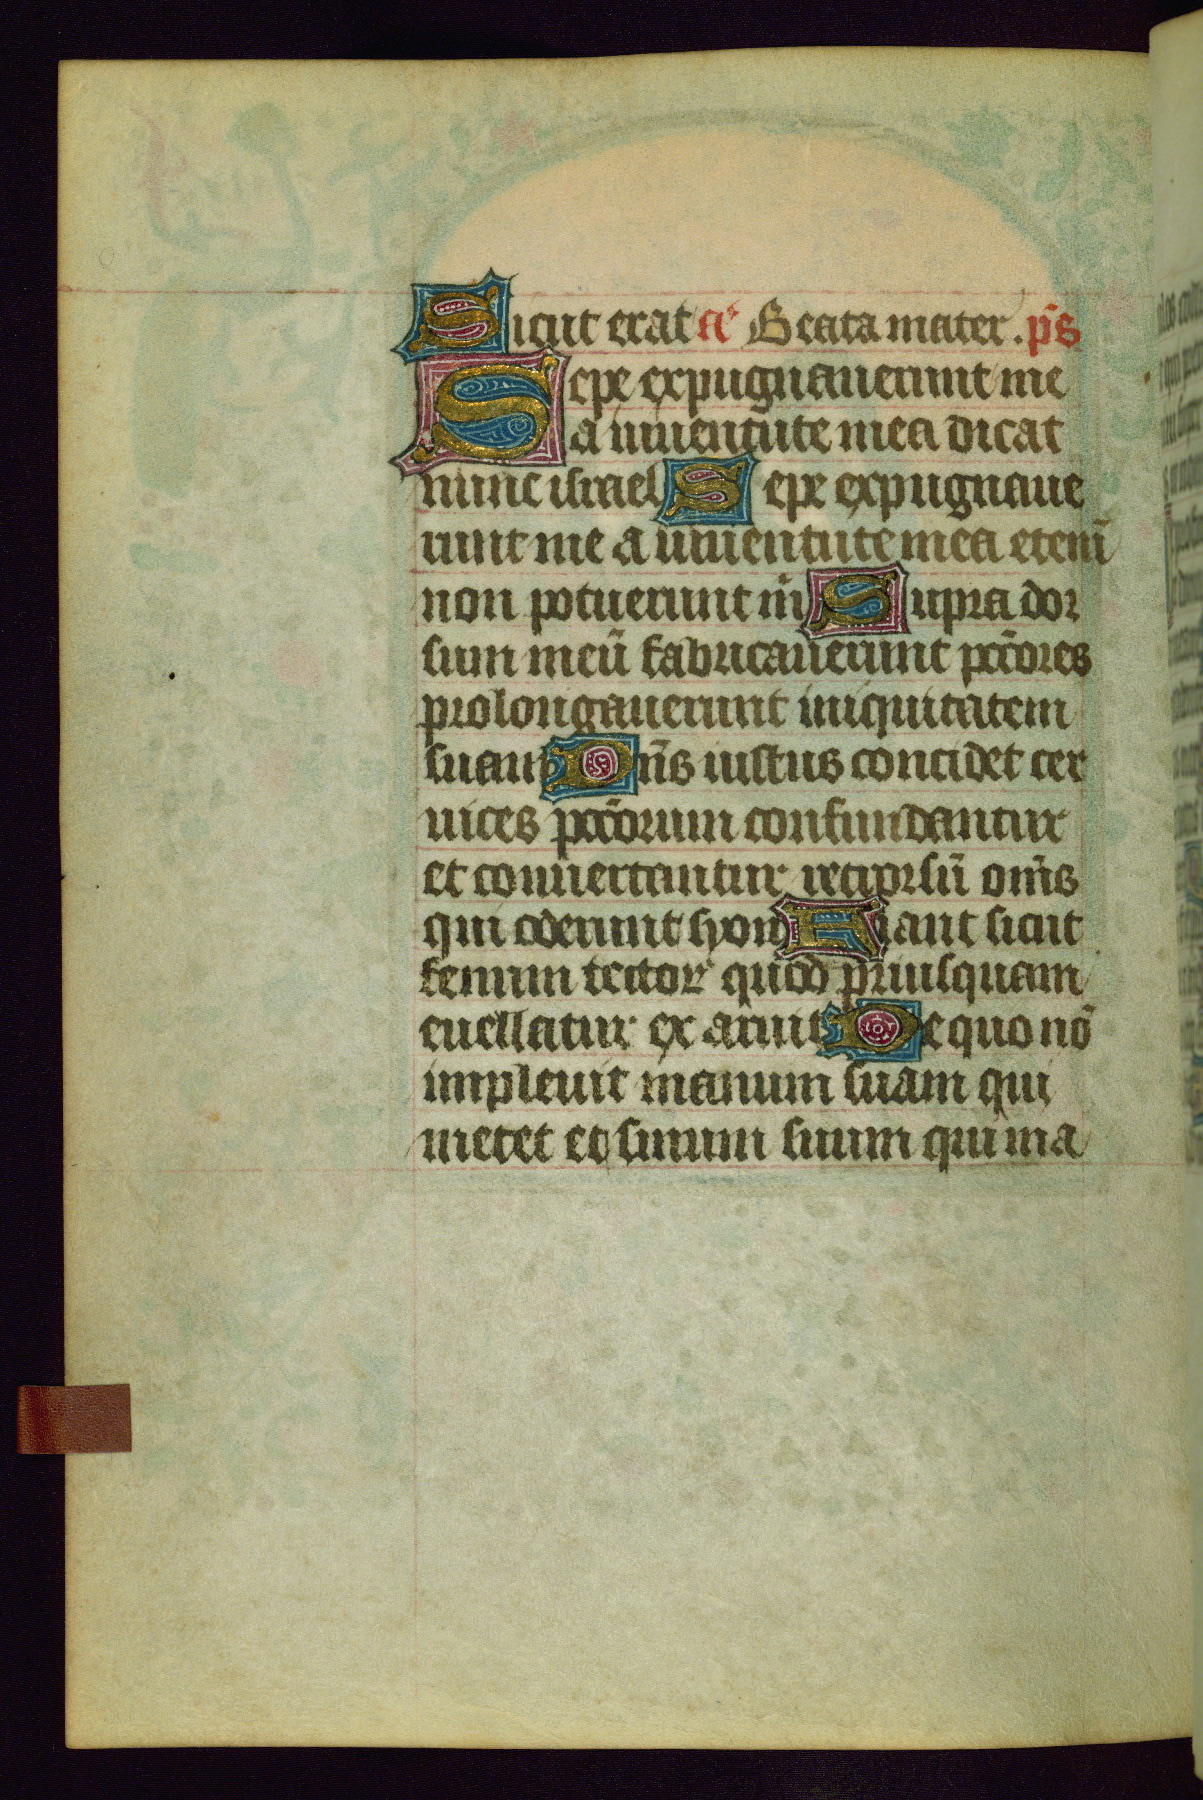 Sicut erat aͣ Beata mater. p̄s
Sepe expugnauerunt me
a iuuentute mea dicat
nunc israel Sepe expugnaue
runt me a iuuentute mea eteni̅
non potuerunt m̅ Supra dor
sum meu̅ fabricauerunt pcc̅ores
prolongauerunt iniquitatem
suam Dn̅s iustus concidet cer
uices pcc̅orum confundantur
et conuertantur retrorsu̅ om̅s
qui oderunt syon Fiant sicut
fenum tector quod priusquam
euellatur exaruit De quo no̅
impleuit manum suam qui
metet et sinum suum qui ma